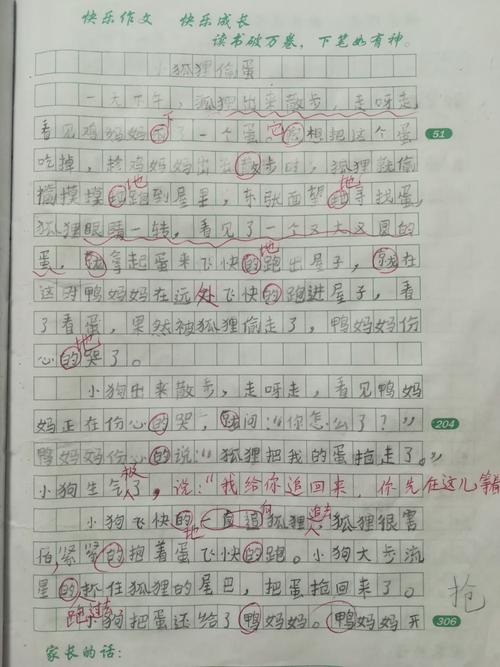 快乐作文 快乐成长
读书破万卷，下笔如有神。
小狐狸偷蛋
一天下午，狐狸出来散步，走呀走，
看见鸡妈妈下了一个蛋。它想把这个蛋
51
吃掉，趁鸡妈妈出出散步时，狐狸就偷
偷摸摸的地跑到屋里，东张西望的地寻找蛋，
狐狸眼睛一转，看见了一个又大又圆的
蛋，就拿起蛋来飞快的地跑出屋子，就在
这时鸭妈妈在远处飞快的跑进屋子，看
了看蛋，果然被狐狸偷走了，鸭妈妈份
心的地哭了。
小狗出来散步，走呀走，看见鸭妈
妈正在份心的哭，就问：“你怎么了？”
204
鸭妈妈份心的说：“狐狸把我的蛋抢走了。”
小狗生气极了，说：“我给你追回来，你先在这儿等着
小狗飞快的地一直追向狐狸追去，狐狸很害
怕紧紧的抱着蛋飞快的跑。小狗大步流
星的跑过去抓住狐狸的尾巴，把蛋抢回来了。
抢
小狗把蛋还给了鸭妈妈。鸭妈妈开
306
家长的话：